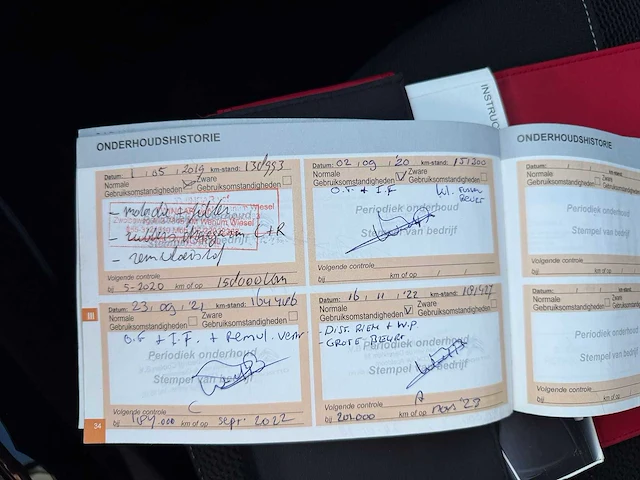 INSTRUC
ONDERHOUDSHISTORIE
Datum: 1 / 05 / 2019 km-stand: 130993
Normale Gebruiksomstandigheden
Zware Gebruiksomstandigheden
- motorolie + filter
Periodiek onderhoud
Stempel van bedrijf
- remvloeistof
Volgende controle
bij 5-2020 km of op 150000 km
Datum: 02 / 09 / '20 km-stand: 151300
Normale Gebruiksomstandigheden
Zware Gebruiksomstandigheden
O.F + I.F
Periodiek onderhoud
Stempel van bedrijf
Volgende controle
bij km of op / /
Datum: 23 / 09 / '21 km-stand: 164486
Normale Gebruiksomstandigheden
Zware Gebruiksomstandigheden
O.F + I.F. + Remvl. verv
Periodiek onderhoud
Stempel van bedrijf
Volgende controle
bij 184.000 km of op sept. 2022
Datum: 16 / 11 / '22 km-stand:
Normale Gebruiksomstandigheden
Zware Gebruiksomstandigheden
- DIST. RIEM + W.P.
- GROTE BEURT
Periodiek onderhoud
Stempel van bedrijf
Volgende controle
bij 201.000 km of op nov '23
III
34
ONDERHOUDSHISTORIE
Datum: / / km-stand:
Normale Gebruiksomstandigheden
Periodiek onderhoud
Stempel van bedrijf
Volgende controle
bij km of op / /
Datum: / / km-stand:
Normale Gebruiksomstandigheden
Periodiek onderhoud
Stempel van bedrijf
Volgende controle
bij km of op / /